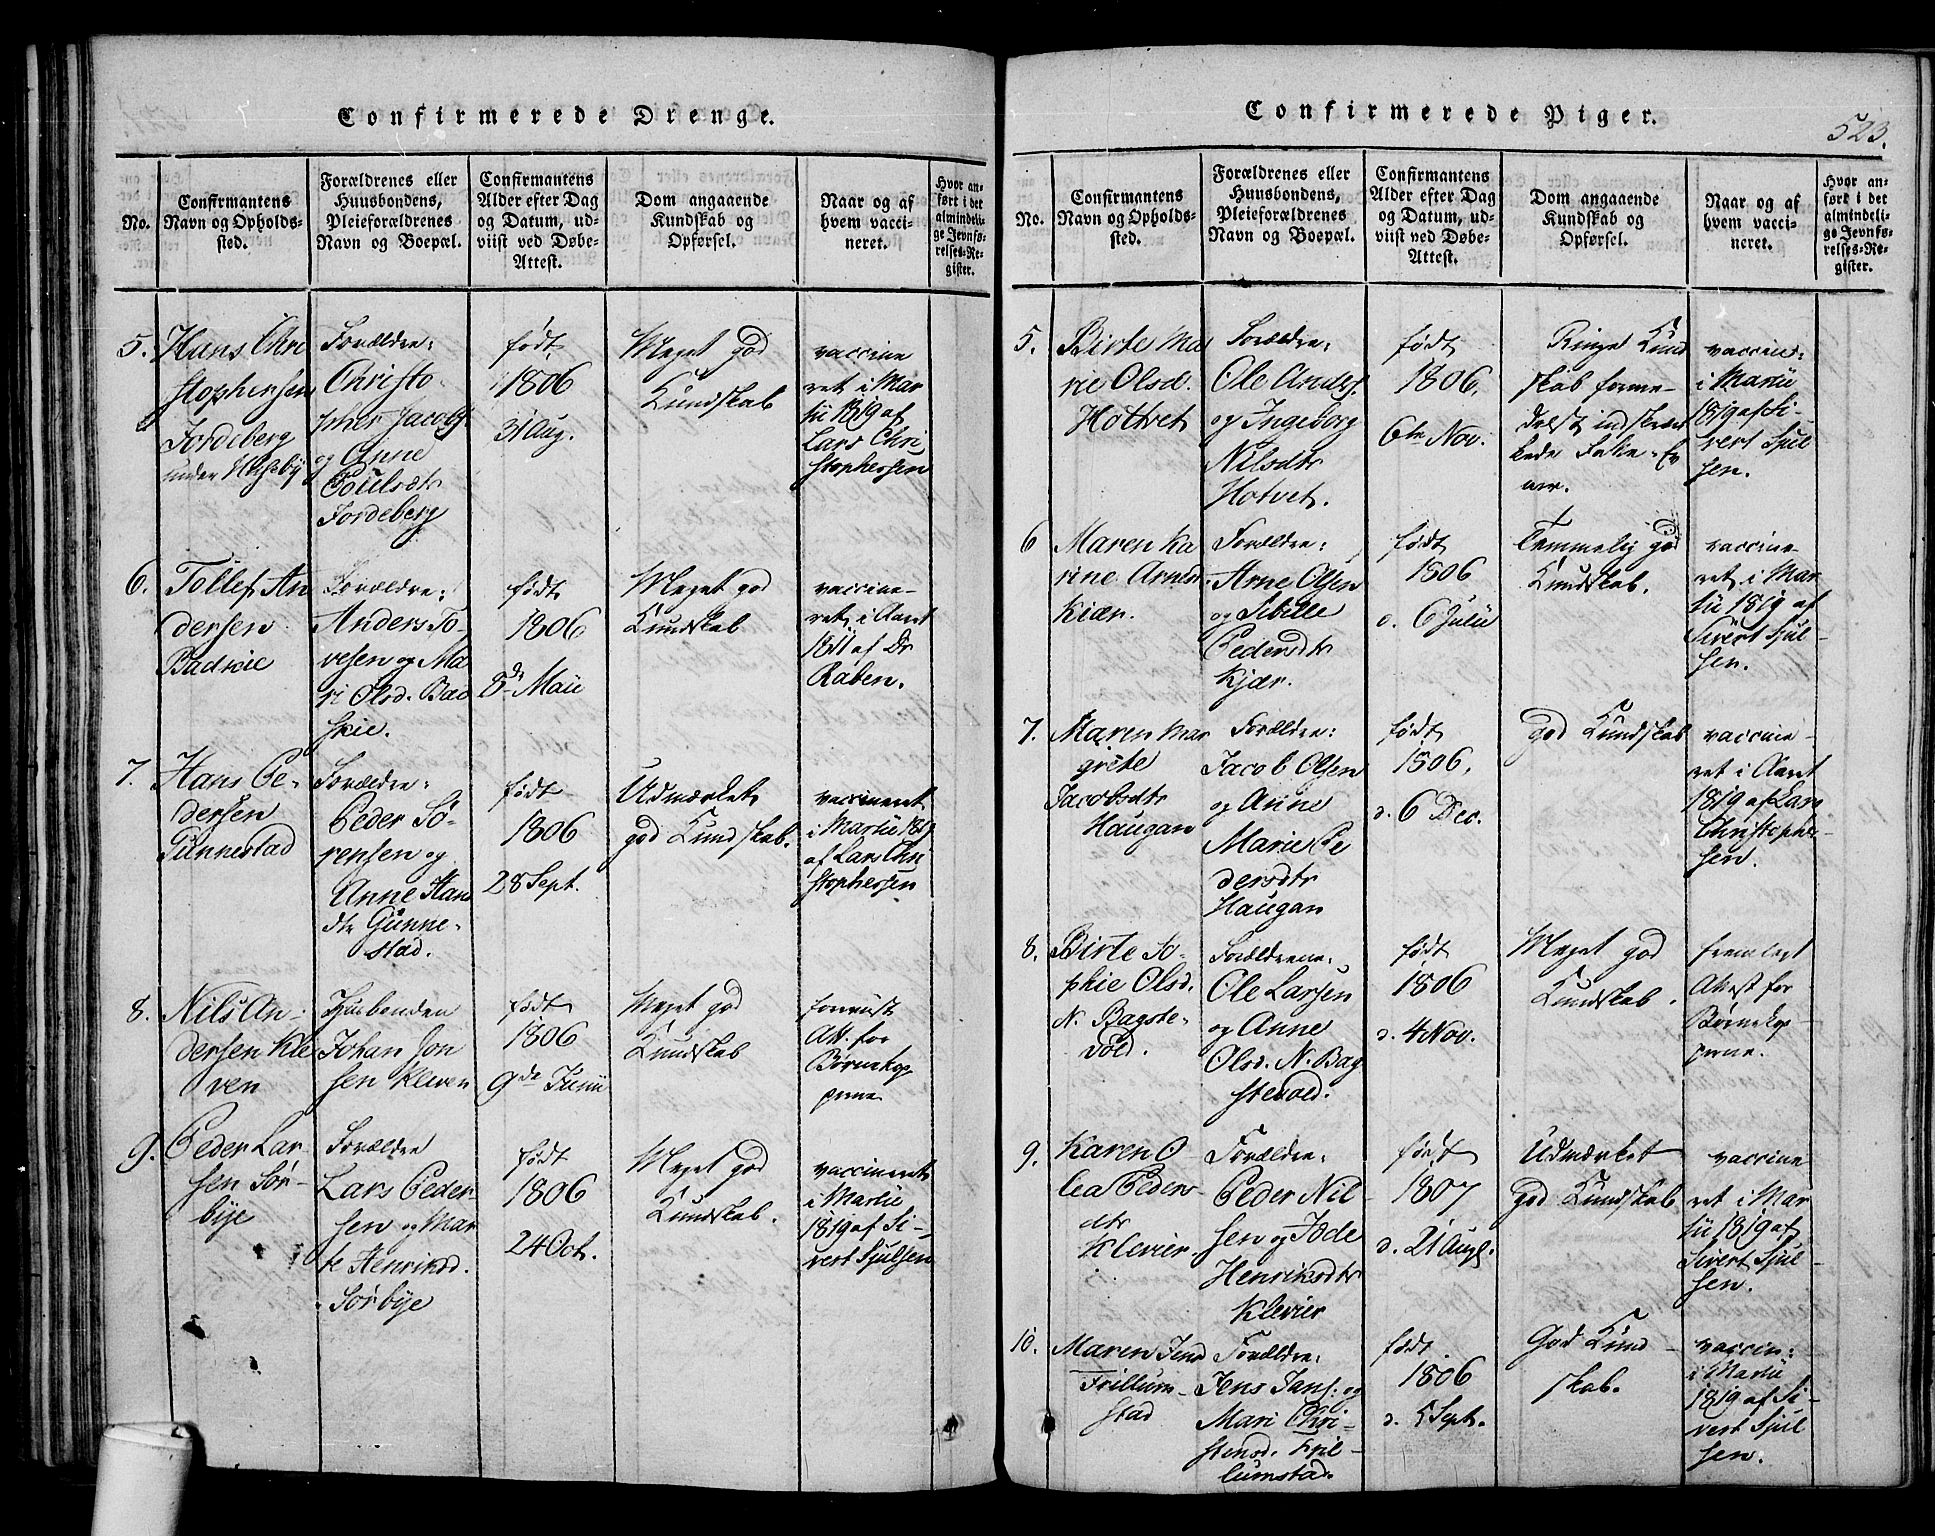 Confirmerede Drenge.
No.
Confirmantens
Navn og Opholds-
sted.
Forældrenes eller
Huusbondens,
Pleieforældrenes
Navn og Boepæl.
Confirmantens
Alder efter Dag
og Datum, ud-
viist ved Døbe-
Attest.
Dom angaaende
Kundskab og
Opførsel.
Naar og af
hvem vacci-
neret.
Hvor an-
ført i det
almindeli-
ge Jevnfø-
relses-Re-
gister.
5.
Hans Chri
stophersen
Jordeberg
under Huseby
Forældre:
Christo-
pher Jacobs.
og Anne
Poulsdtr
Jordeberg
født
1806
31 Aug.
Meget god
Kundskab
vaccine
ret i Mar
tii 1819 af
Lars Chri
stophersen
6.
Tollef An
dersen
Forældre:
Anders To-
vesen og Ma
ri Olsd. Bad
skie.
født
1806
8de Maii
Meget god
Kundskab
vaccine-
ret i Aaret
1811 af Dr
Raben.
7.
Hans Pe-
dersen
Gunnestad
Forældre:
Peder Sø-
rensen og
Anne Hans
dtr Gunne-
stad.
født
1806
28 Sept.
Udmærket
god Kundskab.
vaccineret
i Martii 1819
af Lars Chri
stophersen
8.
Nils An-
dersen Kle
ven
Husbonden
Johan Jon
sen Kleven
født
1806
9de Junii
Meget god
Kundskab
forevist
Att. for
Børnekop
perne
9.
Peder Lar
sen Sør-
bye
Forældre
Lars Peder-
sen og Mar
te Henriksd.
Sørbye
født
1806
24 Oct.
Meget god
Kundskab.
vaccineret
i Martii
1819 af Si-
vert Sjulsen
Confirmerede Piger.
523.
No.
Confirmantens
Navn og Opholds-
sted.
Forældrenes eller
Huusbondens,
Pleieforældrenes
Navn og Boepæl.
Confirmantens
Alder efter Dag
og Datum, ud-
viist ved Døbe-
Attest.
Dom angaaende
Kundskab og
Opførsel.
Naar og af
hvem vacci-
neret.
Hvor an-
ført i det
almindeli-
ge Jevnfø-
relses-Re-
gister.
5.
Birte Ma
rie Olsd.
Hottvet
Forældre:
Ole Anders.
og Ingeborg
Nilsdtr
Hotvet.
født
1806.
6te Nov.
Ringe Kund
skab forme-
delst indskræn
kede
vaccine:
i Martii
1819 af Si-
vert Sjul
sen.
6
Maren Ka
rine Arnesd.
Kiær.
Forældre:
Arne Olsen
og Sibille
Pedersdtr
Kjær.
født
1806
d. 6 Julii
Temmelig god
Kundskab.
vaccine-
ret i Mar
tii 1819 af
Sivert Sjul-
sen.
7.
Maren Mar
grete
Jacobsdtr
Haugan
Forældre:
Jacob Olsen
og Anne
Marie Pe
dersdtr
Haugan
født
1806.
d. 6 Dec.
god Kundskab
vaccine-
ret i Aaret
1819 af Lars
Christopher-
sen.
8.
Birte So-
phie Olsd.
N. Bagste-
vold.
Forældrene:
Ole Larsen
og Anne
Olsd. N. Bag
stevold.
født
1806
d. 4 Nov.
Meget god
Kundskab.
fremlagt
Attest for
Børnekop-
perne.
9.
Karen O
lea Peders-
dtr
Klevier.
Forældre:
Peder Nil-
sen og Jøde
Henriksdtr
Klevier
født
1807
d. 21 Augs.
Udmærket
god Kundskab
vaccine
ret i Mar
tii 1819 af
Sivert Sjul-
sen.
10.
Maren Jensd
Frillum-
stad
Forældre:
Jens Jans. og
Mari Chri-
stensd. Fril-
lumstad.
født
1806
d. 5 Sept.
God Kund-
skab.
vaccin:
i Martii
1819 af Si-
vert Sjul
sen.